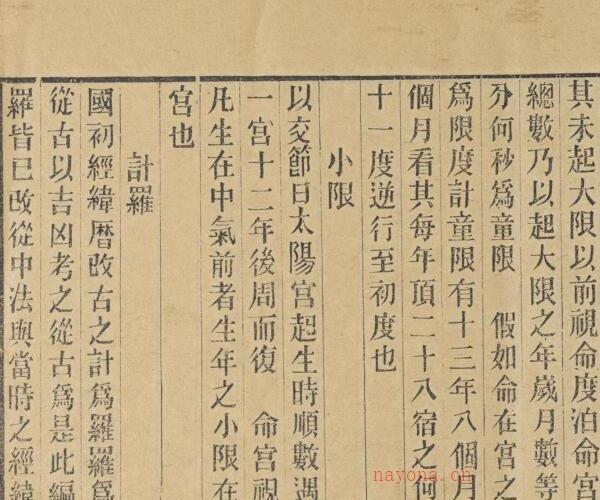 其未起大限以前視命度泊命宮
總數乃以起大限之年歲月數等
分何秒爲童限　假如命在宮之
爲限度計童限有十三年八個月
個月看其每年頂二十八宿之何
十一度逆行至初度也
小限
以交節日太陽宮起生時順數遇
一宮十二年後周而復　命宮視
凡生在中氣前者生年之小限在
宮也
計羅
國初經緯曆改古之計爲羅羅爲
從古以吉凶考之從古爲是此編
羅皆已改從中法與當時之經緯
nayona.cn